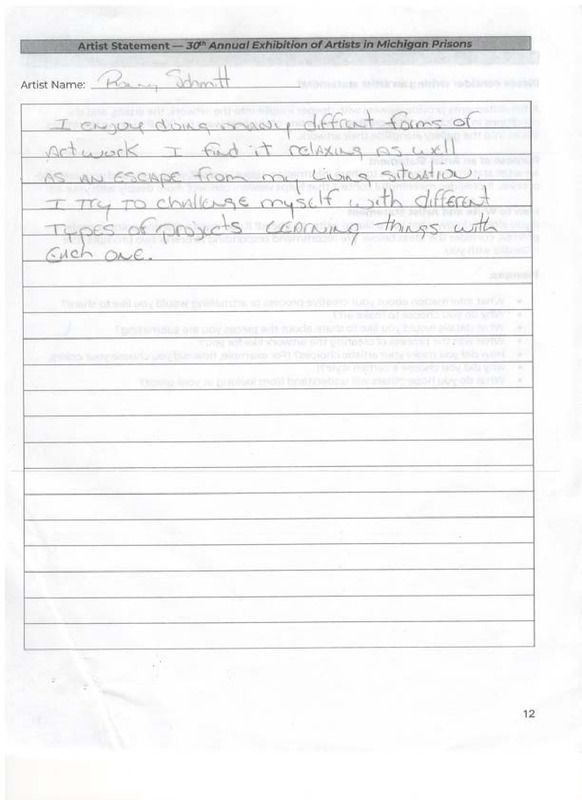 Artist Statement — 30th Annual Exhibition of Artists in Michigan Prisons
Artist Name: Schmitt
I enjoy doing many diffrent forms of
Artwork I find it relaxing as well
AS AN ESCAPE from my Living situation.
I Try To challenge myself with different
Types of projects LEARNING things with
Each one.
12